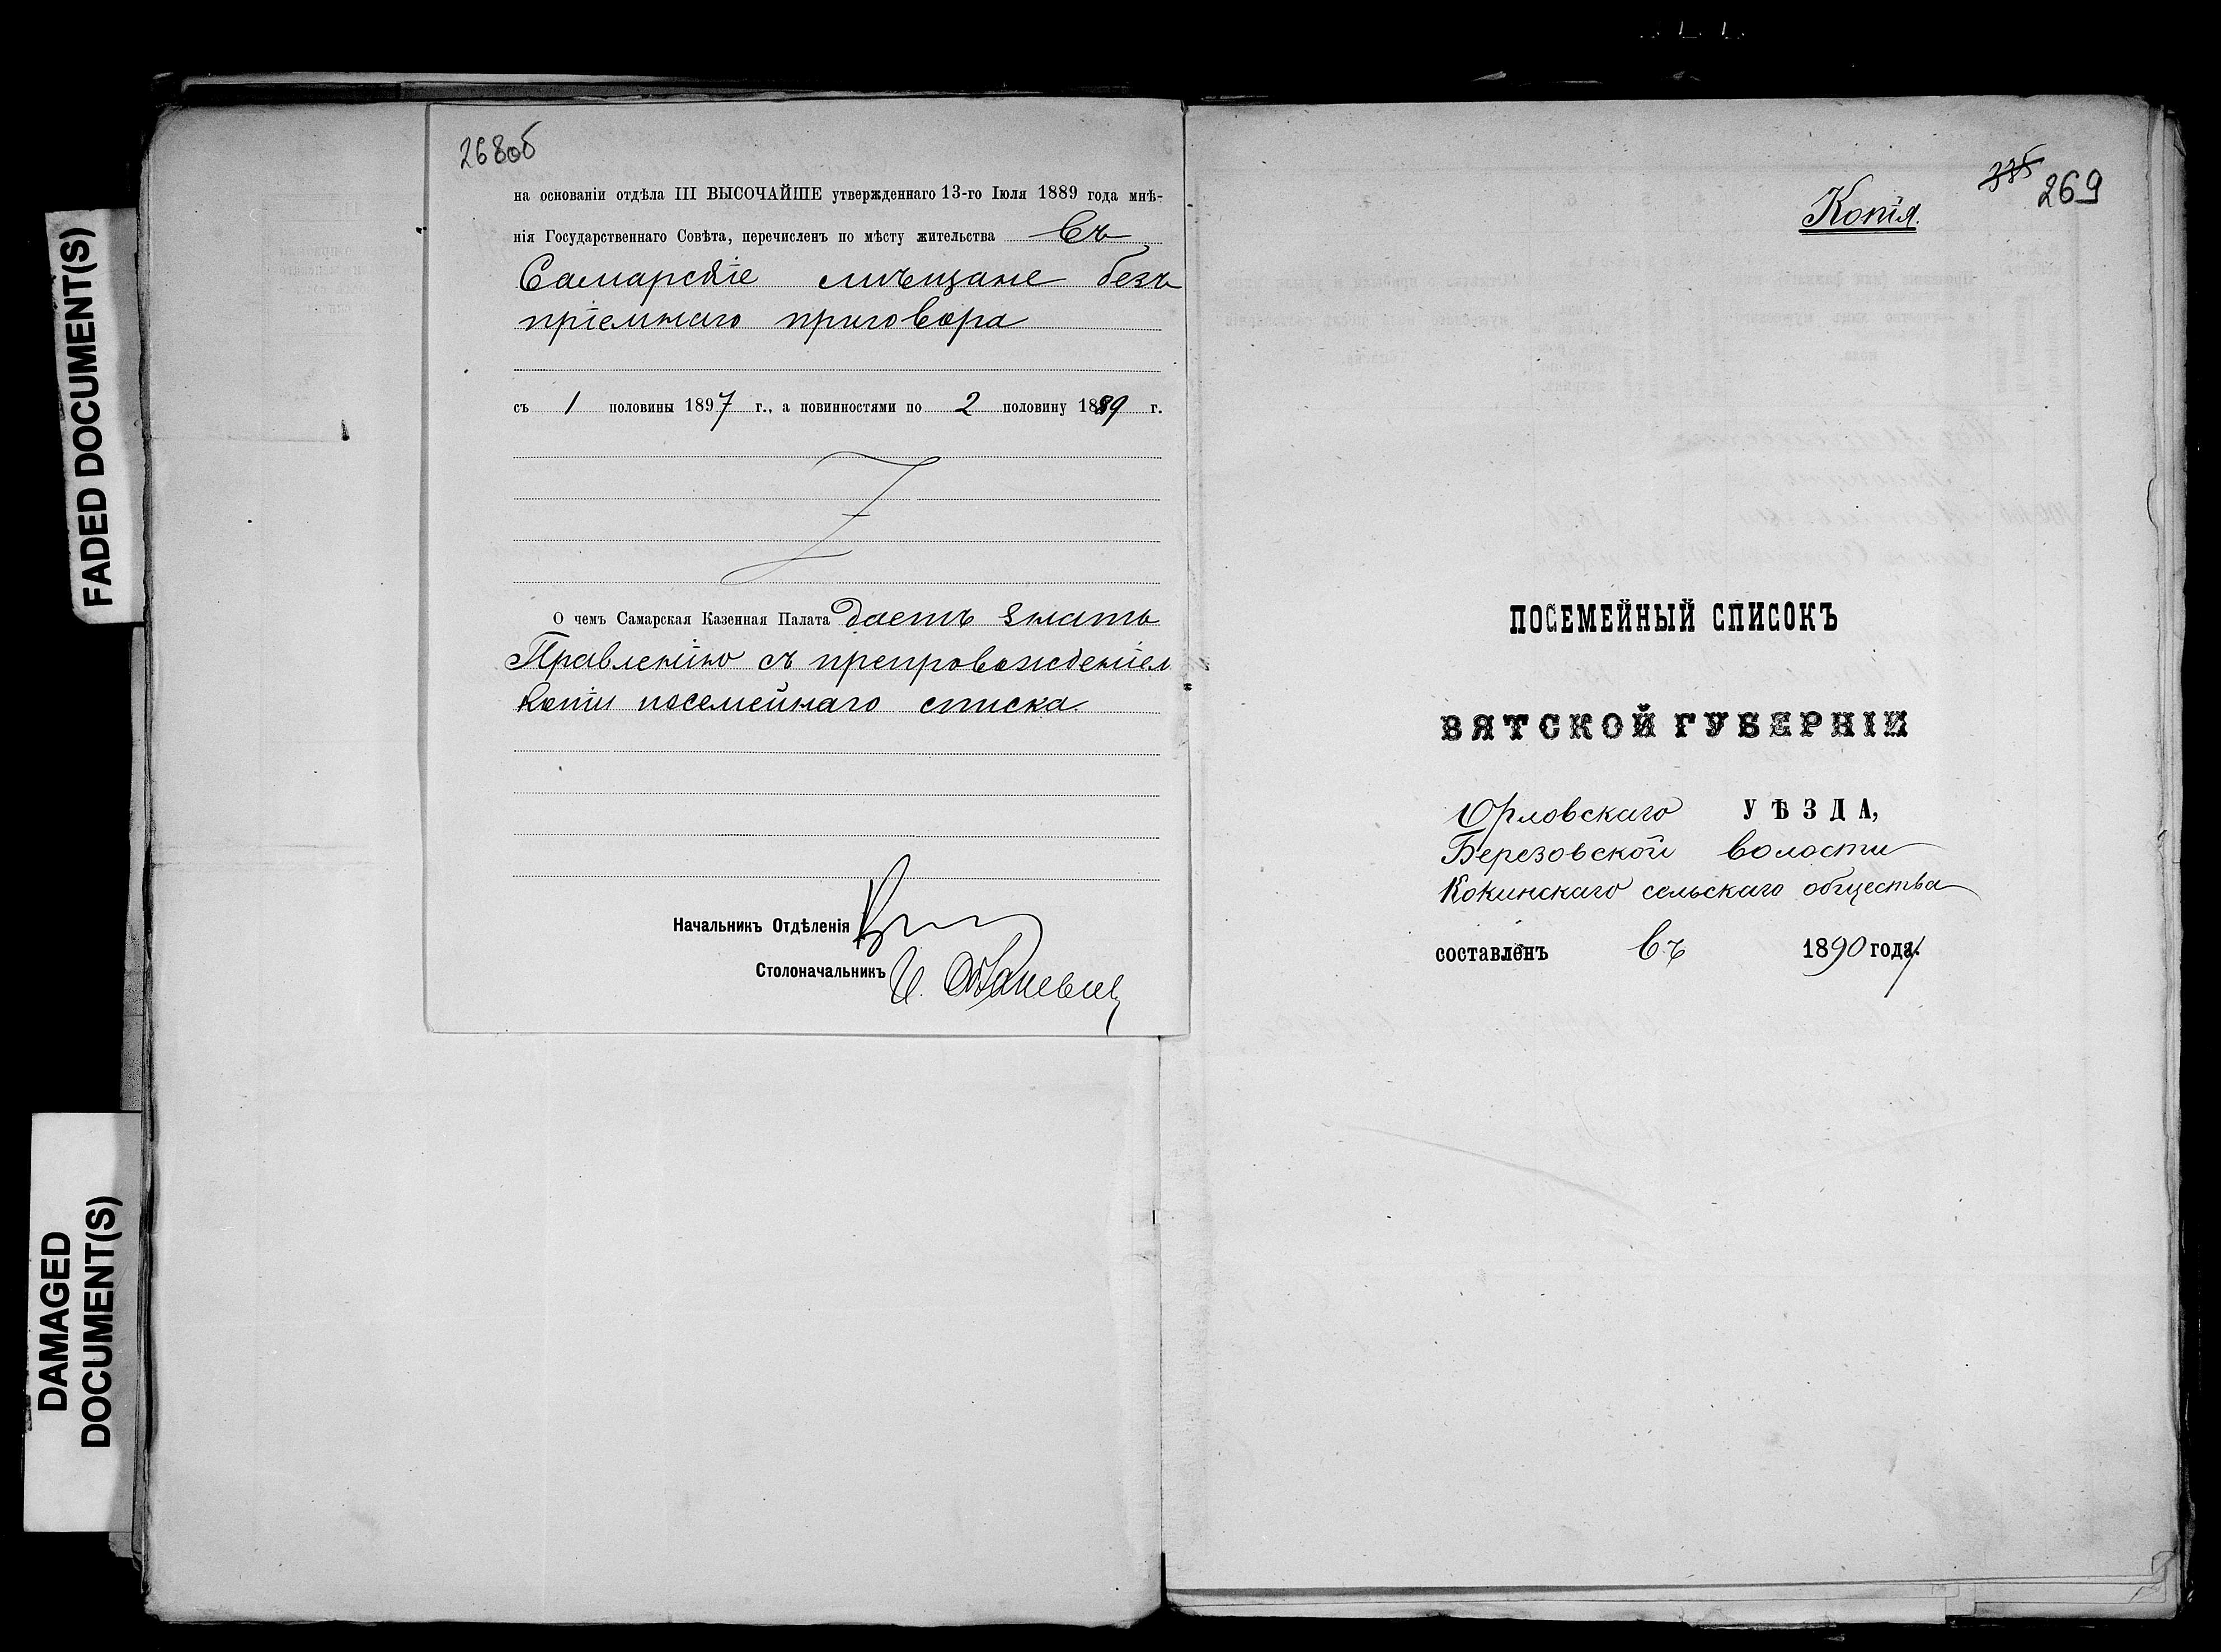 FADED DOCUMENT(S)
DAMAGED
DOCUMENT(S)
268об
на основаніи отдѣла III ВЫСОЧАЙШЕ утвержденнаго 13-го Іюля 1889 года мнѣ-
нія Государственнаго Совѣта, перечисленъ по мѣсту жительства въ
Самарскіе мѣщане безъ
пріемнаго приговора
съ 1 половины 1897 г., а повинностями по 2 половину 1899 г.
О чемъ Самарская Казенная Палата даетъ знать
Правленію съ препровожденіем
копіи посемейнаго списка
Начальникъ Отдѣленія
Столоначальникъ
Копія.
335 269
ПОСЕМЕЙНЫЙ СПИСОКЪ
ВЯТСКОЙ ГУБЕРНІИ
Орловскаго УѢЗДА,
Березовской волости
Кокинскаго сельскаго общества
составленъ въ 1890 года.